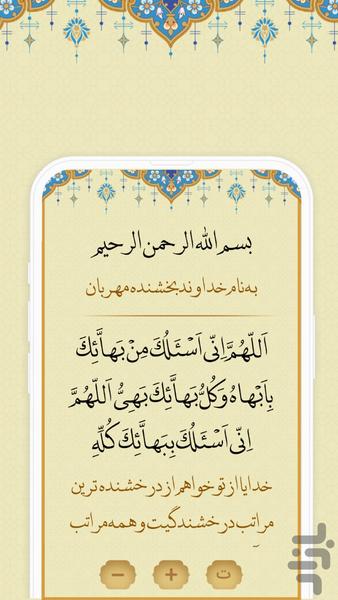 بسم الله الرحمن الرحیم
به نام خداوند بخشنده مهربان
اَللّهُمَّ اِنّى اَسْئَلُكَ مِنْ بَهاَّئِكَ
بِاَبْهاهُ وَكُلُّ بَهاَّئِكَ بَهِىُّ اَللّهُمَّ
اِنّى اَسْئَلُكَ بِبَهاَّئِكَ كُلِّهِ
خدایا از تو خواهم از درخشنده ترین
مراتب درخشندگیت و همه مراتب
− + ت
بازار